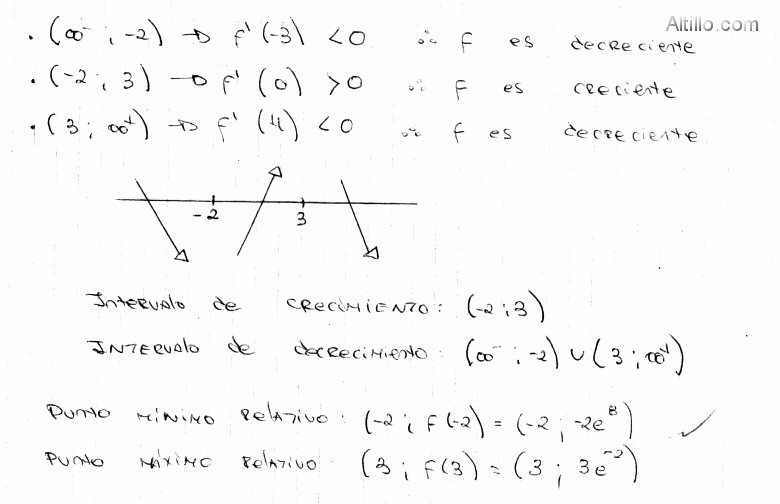 Altillo.com
• (∞⁻ ; -2) → f'(-3) < 0 ∴ f es decreciente
• (-2 ; 3) → f'(0) > 0 ∴ f es creciente
• (3 ; ∞⁺) → f'(4) < 0 ∴ f es decreciente
-2 3
Intervalo de crecimiento: (-2 ; 3)
Intervalo de decrecimiento: (∞⁻ ; -2) ∪ (3 ; ∞⁺)
Punto mínimo relativo: (-2 ; f(-2) = (-2 ; -2e⁸)
Punto máximo relativo: (3 ; f(3) = (3 ; 3e⁻²)